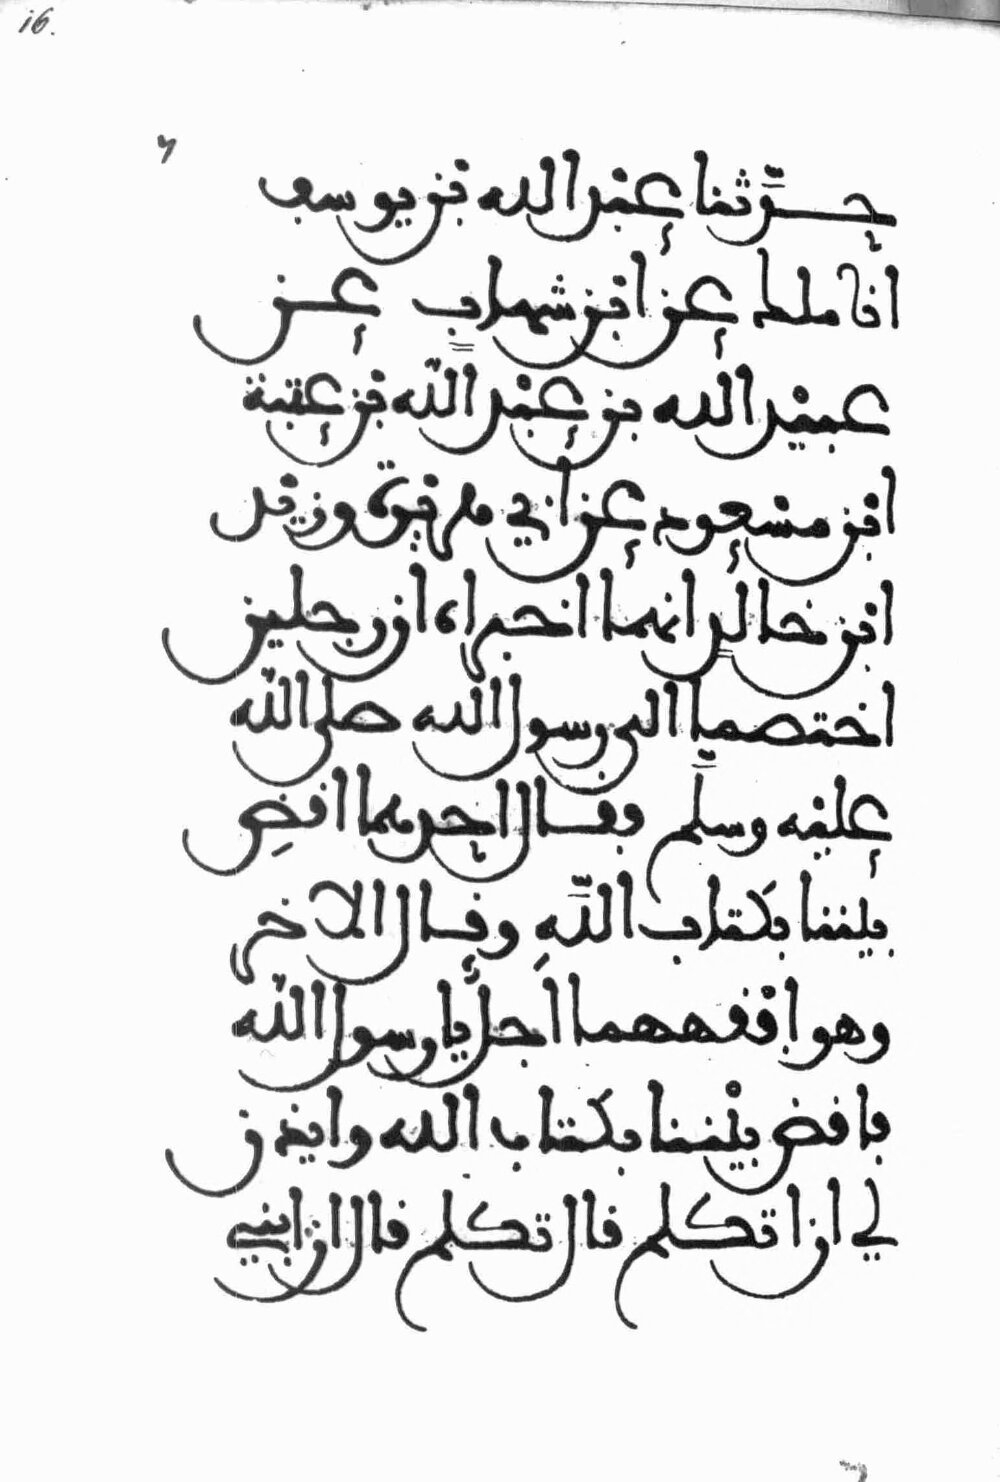 16.
حدثنا عبد الله بن يوسف
انا ملك عن ابن شهاب عن
عبيد الله بن عبد الله بن عتبة
ابن مسعود عن ابي هريرة وزيد
ابن خالد انهما اخبراه ان رجلين
اختصما الى رسول الله صلى الله
عليه وسلم فقال احدهما اقض
بيننا بكتاب الله وقال الاخر
وهو افقههما اجل يا رسول الله
فاقض بيننا بكتاب الله وايذن
لي ان اتكلم قال تكلم قال ان ابني